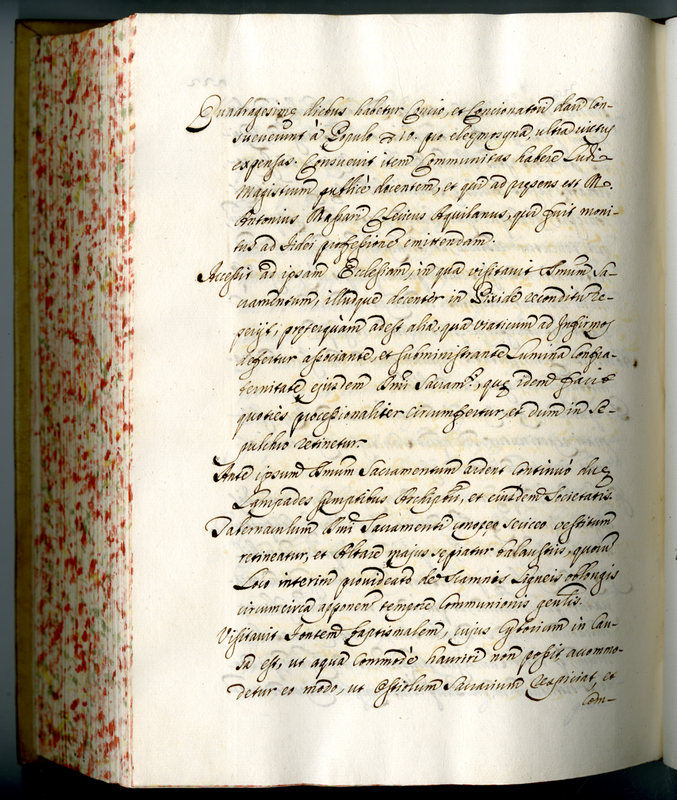 Quadragesimę diebus habetur Concio, et Concionatori dari con-
sueverunt à Populo 10. pro eleęmosyna, ultra victus
expensas. Consuevit item Communitas habere Ludi
Magistrum publicè docentem, et qui ad pręsens est
Antonius Clericus Aquilanus, qui fuit moni-
tus ad fidei professionē emittendam.
Accessit ad ipsam Ecclesiam, in qua visitavit Ssmum Sa-
cramentum, illudque decenter in Pixide reconditū re-
perijt, pręterquam adest alia, qua viaticum ad Infirmos
defertur associante, et subministrante Lumina Confra-
ternitate ejusdem Ssmi Sacram.ti, quę idem facit
quoties processionaliter circumfertur, et dum in Se-
pulchro retinetur.
Ante ipsum Ssmum Sacramentum ardent continuò duę
Lampades sumptibus Archiptri, et eiusdem Societatis.
Tabernaculum Ssmi Sacramenti conopęo sericeo vestitum
retineatur, et Altare majus sepiatur balaustris, quorū
Loco interim provideatr de Scamnis Ligneis oblongis
circumcirca apponen. tempore Communionis genlis.
Visitavit Fontem baptismalem, cujus Cyborium in cau-
sa est, ut aqua commodè hauriri non possit, accommo-
detur eo modo, ut Ostiolum Sacrarium respiciat, et
com-